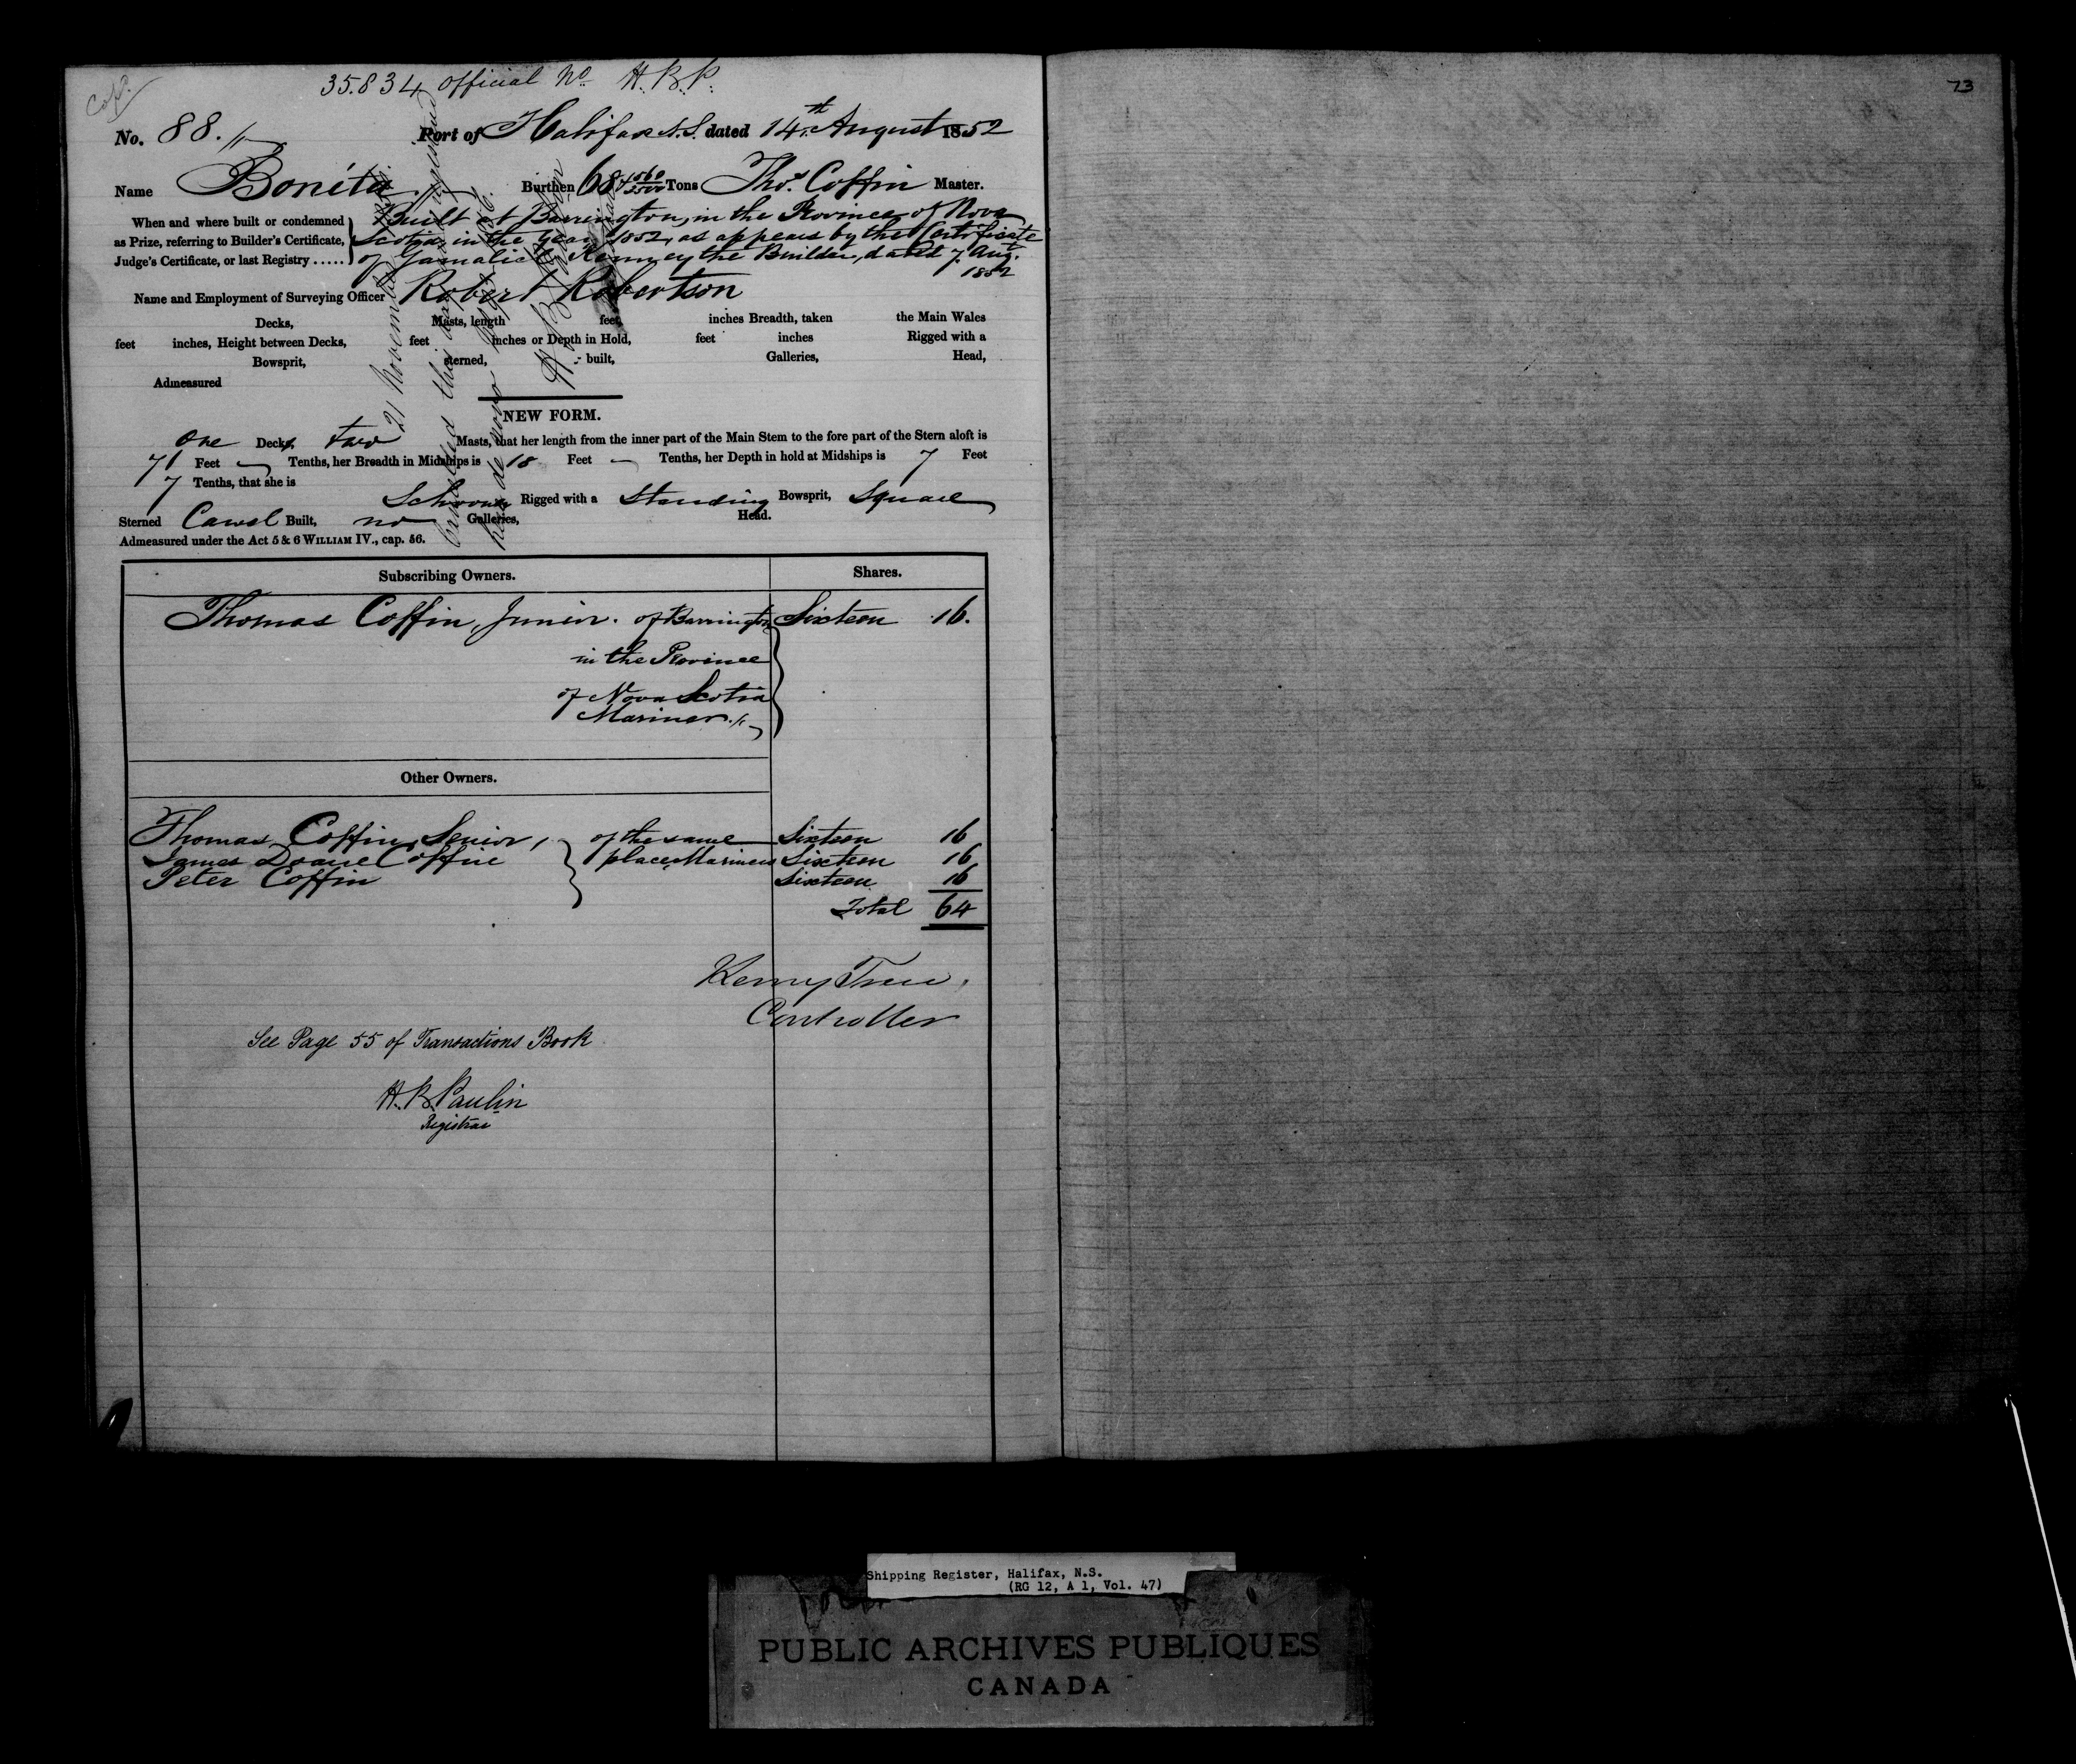 Cop.
35.834 Official No. H.B.P.
73
No. 88. Port of Halifax N.S. dated 14th August 1852
Name Bonita Burthen 68 1560/3500 Tons Thos. Coffin Master.
When and where built or condemned as Prize, referring to Builder's Certificate, Judge's Certificate, or last Registry .....
Built at Barrington, in the Province of Nova
Scotia, in the Year 1852, as appears by the Certificate
of Gamaliel Kenney the Builder, dated 7 Augt.
1852
Name and Employment of Surveying Officer Robert Robertson
Decks, Masts, length feet, inches Breadth, taken the Main Wales
feet inches, Height between Decks, feet inches or Depth in Hold, feet inches Rigged with a
Bowsprit, sterned, built, Galleries, Head,
Admeasured
NEW FORM.
One Deck, two Masts, that her length from the inner part of the Main Stem to the fore part of the Stern aloft is
71 Feet — Tenths, her Breadth in Midships is 18 Feet — Tenths, her Depth in hold at Midships is 7 Feet
7 Tenths, that she is
Schooner Rigged with a Standing Bowsprit, Square
Sterned Carvel Built, no Galleries, Head.
Admeasured under the Act 5 & 6 WILLIAM IV., cap. 56.
21 November
Cancelled this and registered
here de novo
Subscribing Owners. Shares.
Thomas Coffin, Junior. of Barrington Sixteen 16.
in the Province
of Nova Scotia
Mariner.
Other Owners.
Thomas Coffin, Senior, of the same Sixteen 16
James Doane Coffin place, Mariners Sixteen 16
Peter Coffin Sixteen 16
Total 64
Controller
See Page 55 of Transactions Book
H.B. Paulin
Registrar
Shipping Register, Halifax, N.S.
(RG 12, A 1, Vol. 47)
PUBLIC ARCHIVES PUBLIQUES
CANADA